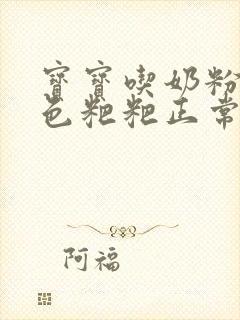 寶寶喫奶粉
色粑粑正常
阿福